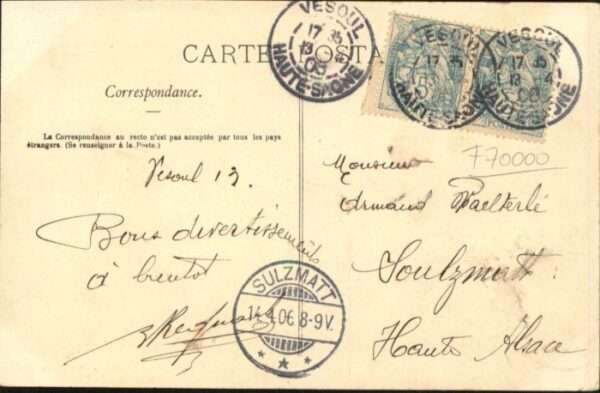 CARTE POSTALE
VESOUL
17 35
13 - 4
06
HAUTE-SAONE
VESOUL
17 35
HAUTE-SAONE
VESOUL
17 35
13 4
06
HAUTE-SAONE
Correspondance.
La Correspondance au recto n'est pas acceptée par tous les pays
étrangers. (Se renseigner à la Poste.)
F70000
Vesoul 13.
Bons divertissements
à bientot
Monsieur
Armand
Soulzmatt
Haute Alsace
SULZMATT
14.4.06.8-9V.
* * *